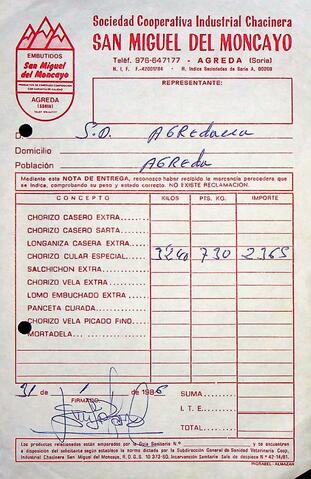 Sociedad Cooperativa Industrial Chacinera
SAN MIGUEL DEL MONCAYO
Teléf. 976-647177 - AGREDA (Soria)
N. I. F. F-42001784 - R. Indice Sociedades de Soria A, 00008
EMBUTIDOS
San Miguel
del Moncayo
AGREDA
(SORIA)
REPRESENTANTE:
D. S.D. AGREDana
Domicilio
Población AGREDa
Mediante esta NOTA DE ENTREGA, reconozco haber recibido la mercancía perecedera que
se indica, comprobando su peso y estado correcto. NO EXISTE RECLAMACION.
CONCEPTO KILOS PTS. KG. IMPORTE
CHORIZO CASERO EXTRA
CHORIZO CASERO SARTA
LONGANIZA CASERA EXTRA
CHORIZO CULAR ESPECIAL 3240 730 2365
SALCHICHON EXTRA
CHORIZO VELA EXTRA
LOMO EMBUCHADO EXTRA
PANCETA CURADA
CHORIZO VELA PICADO FINO
MORTADELA
31 de 1 de 1986
FIRMADO
SUMA
I. T. E.
TOTAL
Los productos relacionados están amparados por la Guía Sanitaria N.º y se encuentran
a disposición del solicitante según establece la norma dictada por la Subdirección General de Sanidad Veterinaria Coop.
Industrial Chacinera San Miguel del Moncayo, R.D.G.S. 10 373-50, Intervención Sanitaria Sala de despiece N.º 42-14/81.
INGRABEL - ALMAZAN